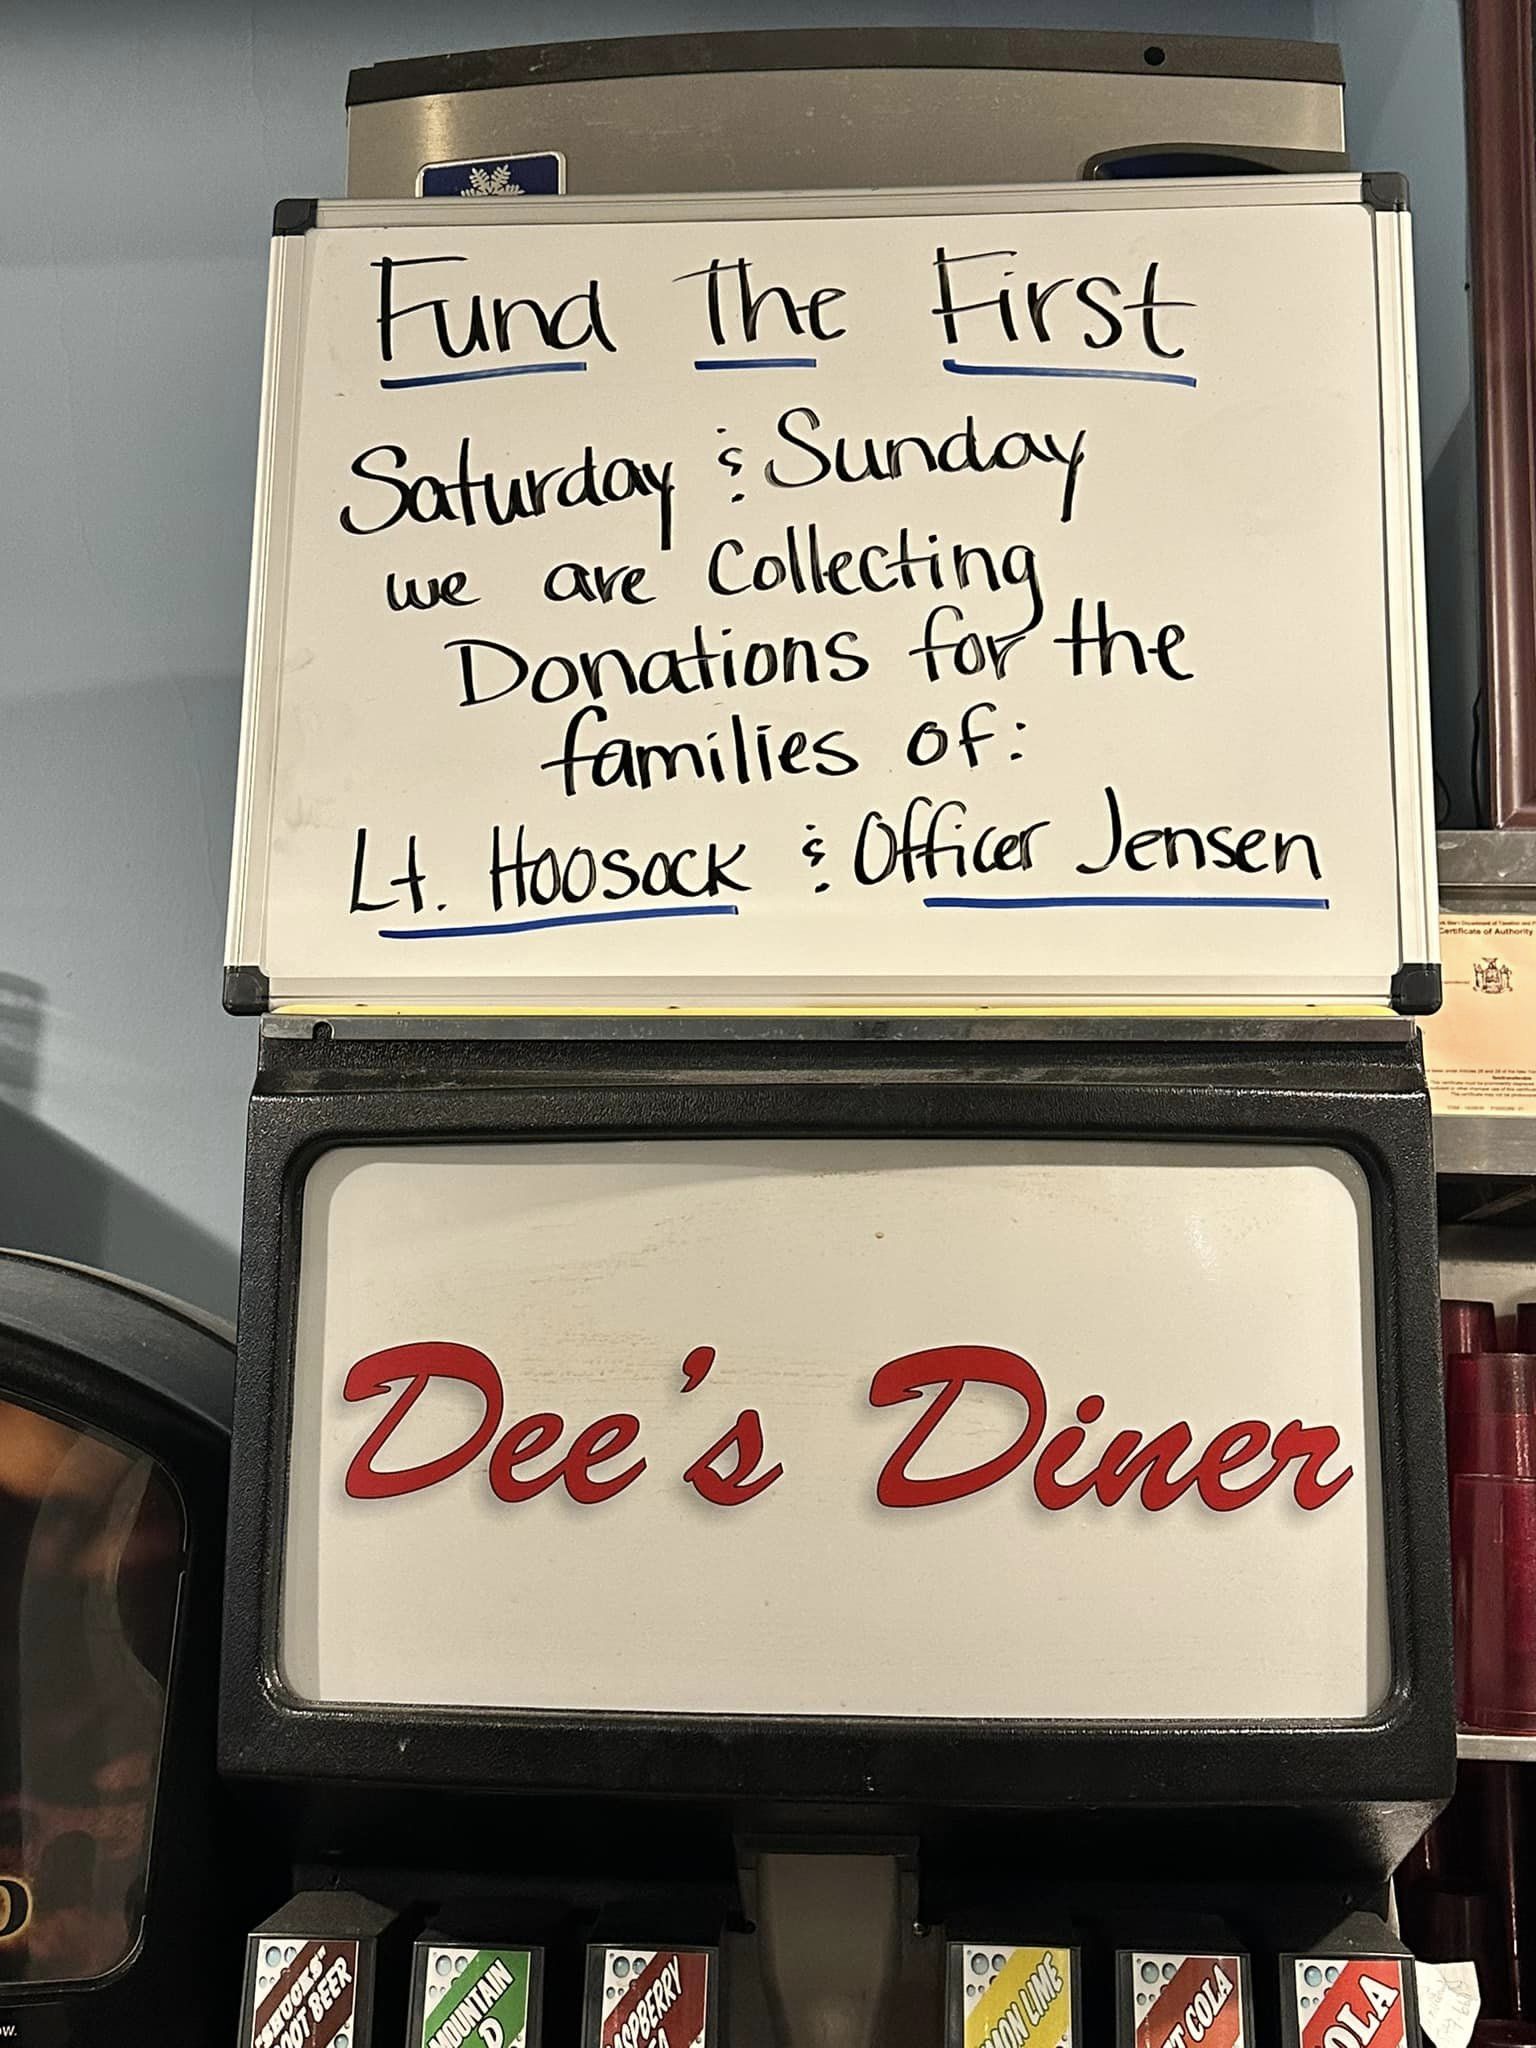 Fund The First
Saturday & Sunday
we are Collecting
Donations for the
families of:
Lt. Hoosock & Officer Jensen
Certificate of Authority
Dee's Diner
ROOT BEER
MOUNTAIN
D
RASPBERRY
LEMON LIME
COLA
COLA